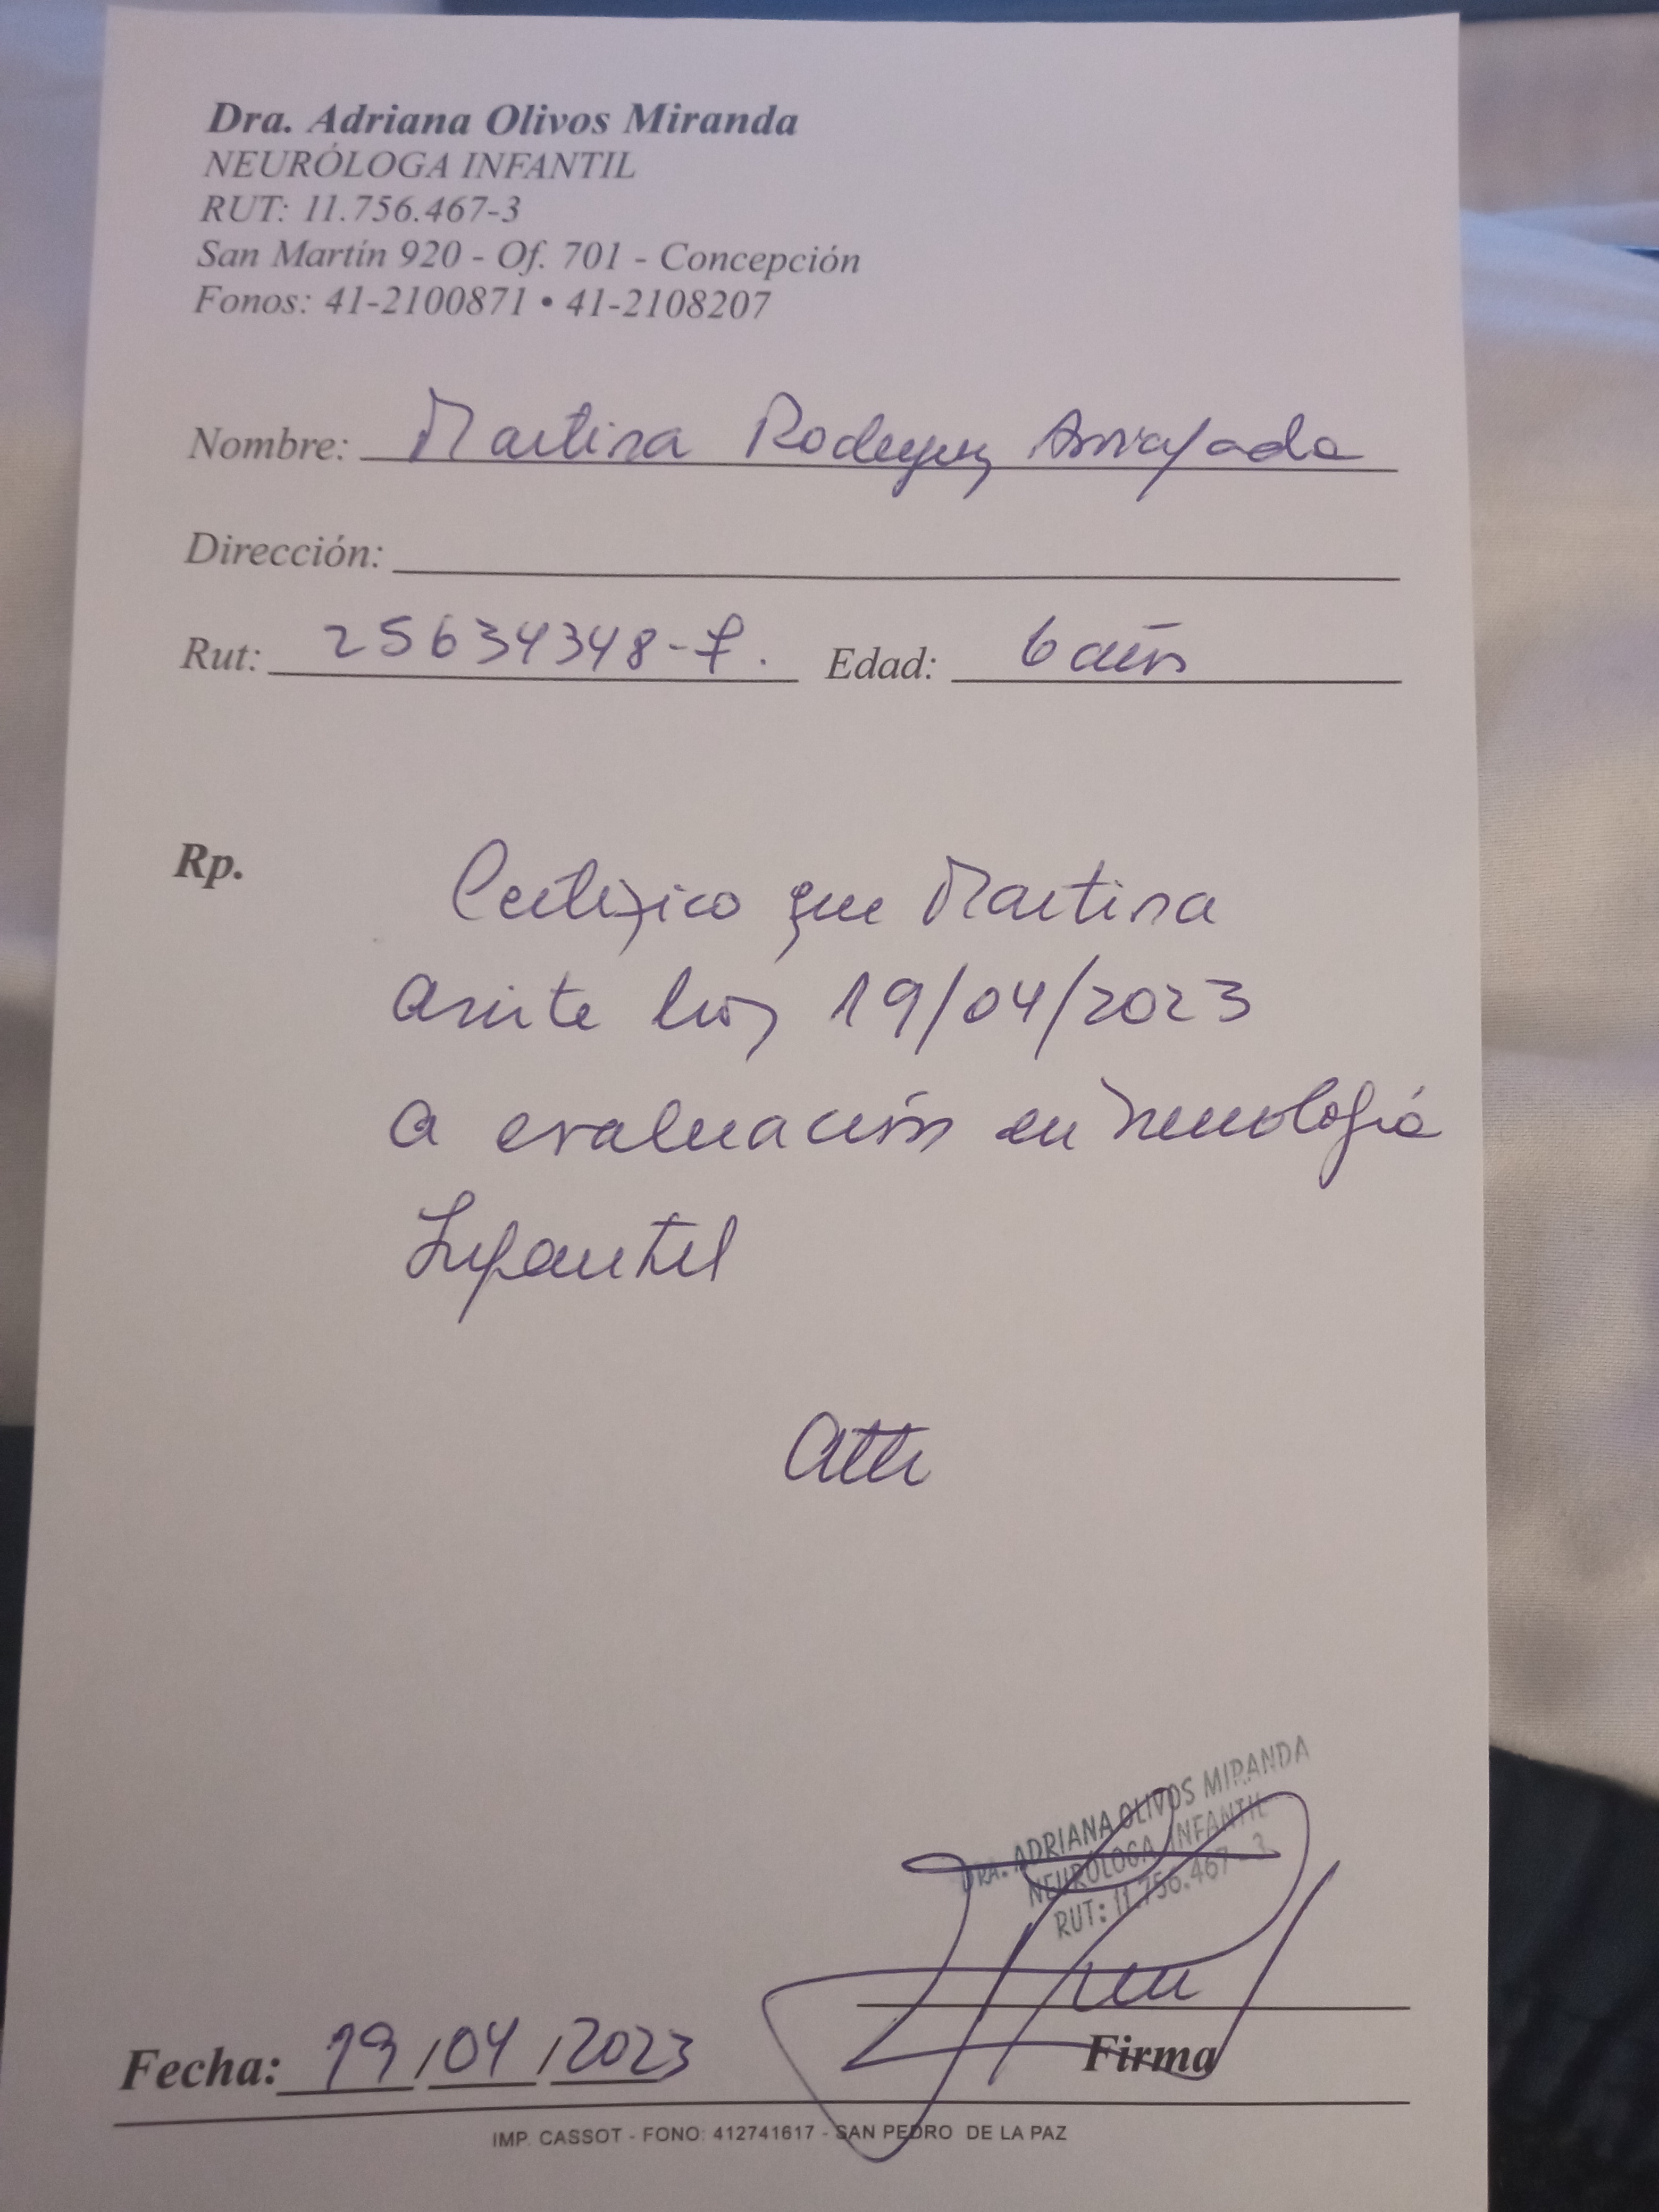 Dra. Adriana Olivos Miranda
NEURÓLOGA INFANTIL
RUT: 11.756.467-3
San Martín 920 - Of. 701 - Concepción
Fonos: 41-2100871 • 41-2108207
Nombre: Martina Rodriguez
Dirección:
Rut: 25634348-7. Edad: 6 años
Rp.
Certifico que Martina
asiste hoy 19/04/2023
a evaluación en Neurología
Infantil
Atte
DRA. ADRIANA OLIVOS MIRANDA
NEURÓLOGA INFANTIL
RUT: 11.756.467-3
Fecha: 19/04/2023 Firma
IMP. CASSOT - FONO: 412741617 - SAN PEDRO DE LA PAZ